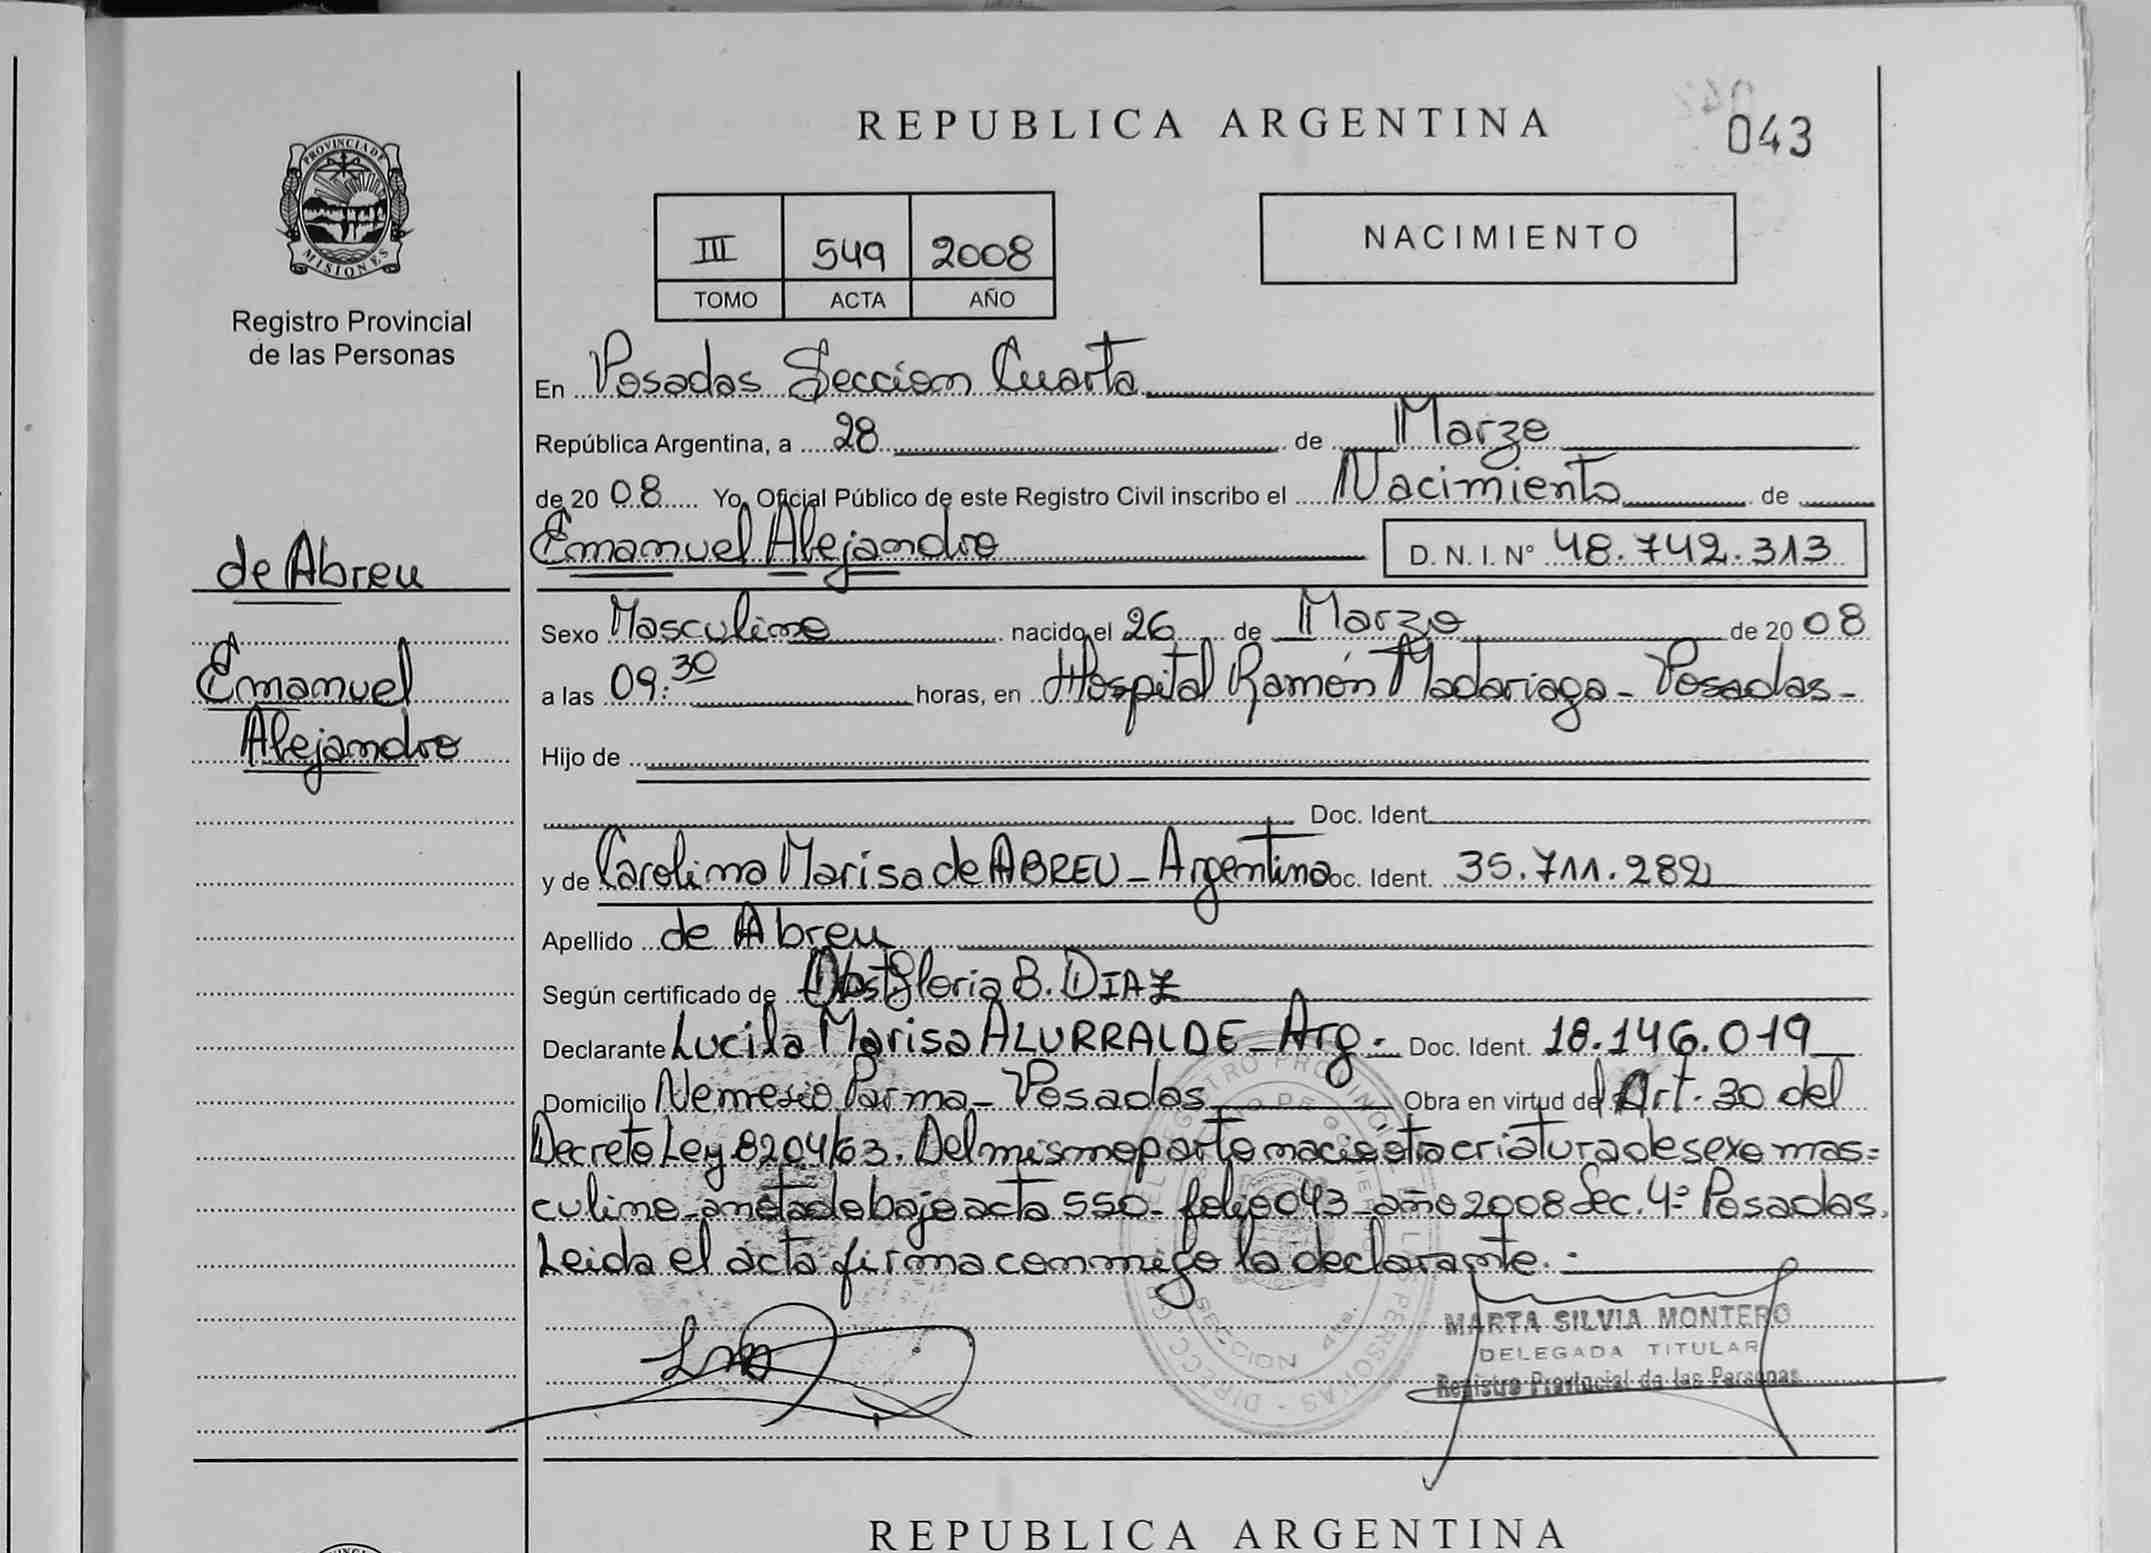 REPUBLICA ARGENTINA
043
PROVINCIA DE
MISIONES
Registro Provincial
de las Personas
III 549 2008
TOMO ACTA AÑO
NACIMIENTO
En Posadas Seccion Cuarta
República Argentina, a 28 de Marzo
de 2008 Yo, Oficial Público de este Registro Civil inscribo el Nacimiento de
Emanuel Alejandro D. N. I. N° 48.742.313
de Abreu
Emanuel
Alejandro
Sexo Masculino nacido el 26 de Marzo de 2008
a las 09:30 horas, en Hospital Ramón Madariaga - Posadas -
Hijo de
Doc. Ident.
y de Carolina Marisa de ABREU - Argentina Doc. Ident. 35.711.282
Apellido de Abreu
Según certificado de Obst Gloria B. DIAZ
Declarante Lucila Marisa ALURRALDE - Arg. - Doc. Ident. 18.146.019
Domicilio Nemesio Parma - Posadas Obra en virtud del Art. 30 del
Decreto Ley 8204/63. Del mismo parto nació otra criatura de sexo mas=
culino - anotado bajo acta 550 - folio 043 - año 2008 Sec. 4º Posadas.
Leida el acta firma conmigo la declarante. -
MARTA SILVIA MONTERO
DELEGADA TITULAR
Registro Provincial de las Personas
SECCION 4ta.
REPUBLICA ARGENTINA